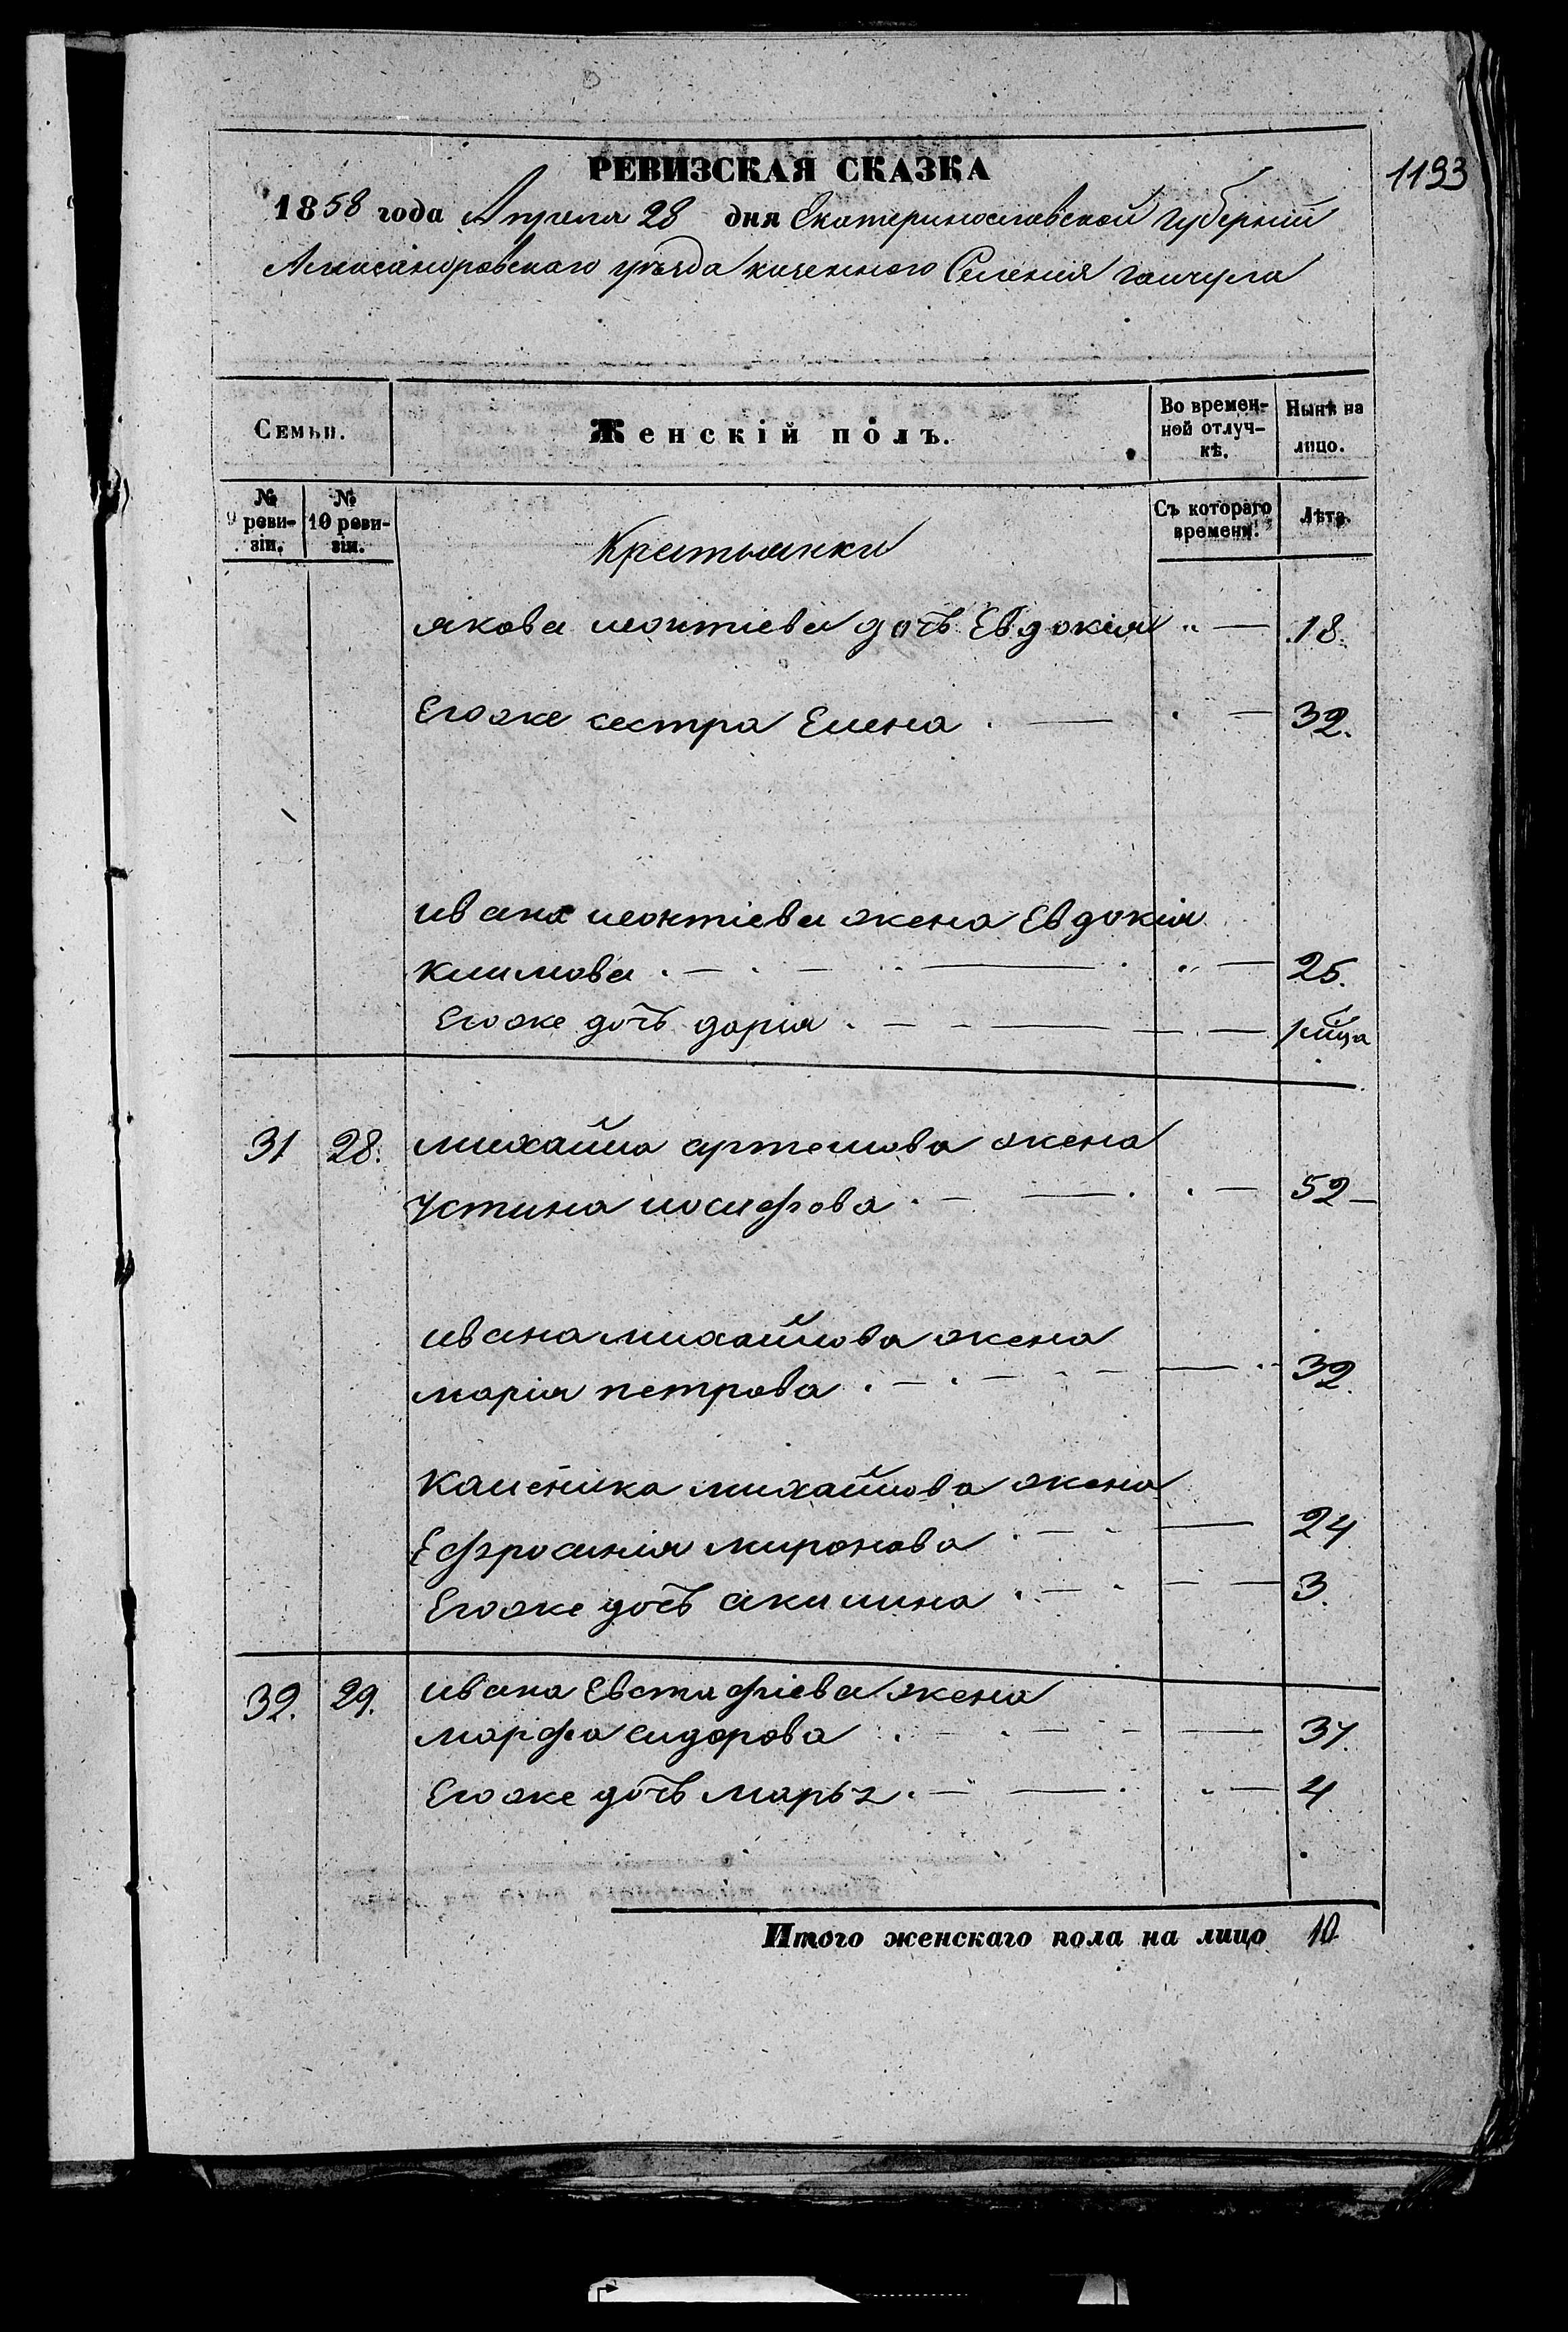 РЕВИЗСКАЯ СКАЗКА
1193
1858 года Апреля 28 дня Екатеринославской губернии
Александровского уѣзда казенного Селения гайчула
Семьи. Женскій полъ. Во времен-ной отлуч-кѣ. Нынѣ на лицо.
№ 9 реви-зіи. № 10 реви-зіи. Съ котораго времени. Лѣта.
Крестьянки
якова леонтіева дочь Евдокія " — 18.
Егоже сестра Елена . — . — 32.
ивана леонтіева жена Евдокія
климова . — . — 25.
Егоже дочь дарія . — — — 1 мца
31 28. михайла артемова жена
Устина иосифова . — . — 52 —
ивана михайлова жена
марія петрова . — . — 32.
калѣника михайлова жена
Ефросинія миронова . — — 24
Егоже дочь акилина . — . — 3.
32. 29. ивана Евстафіева жена
марфа сидорова . — . — 37.
Егоже дочь марья . — . — 4
Итого женскаго пола на лицо 10